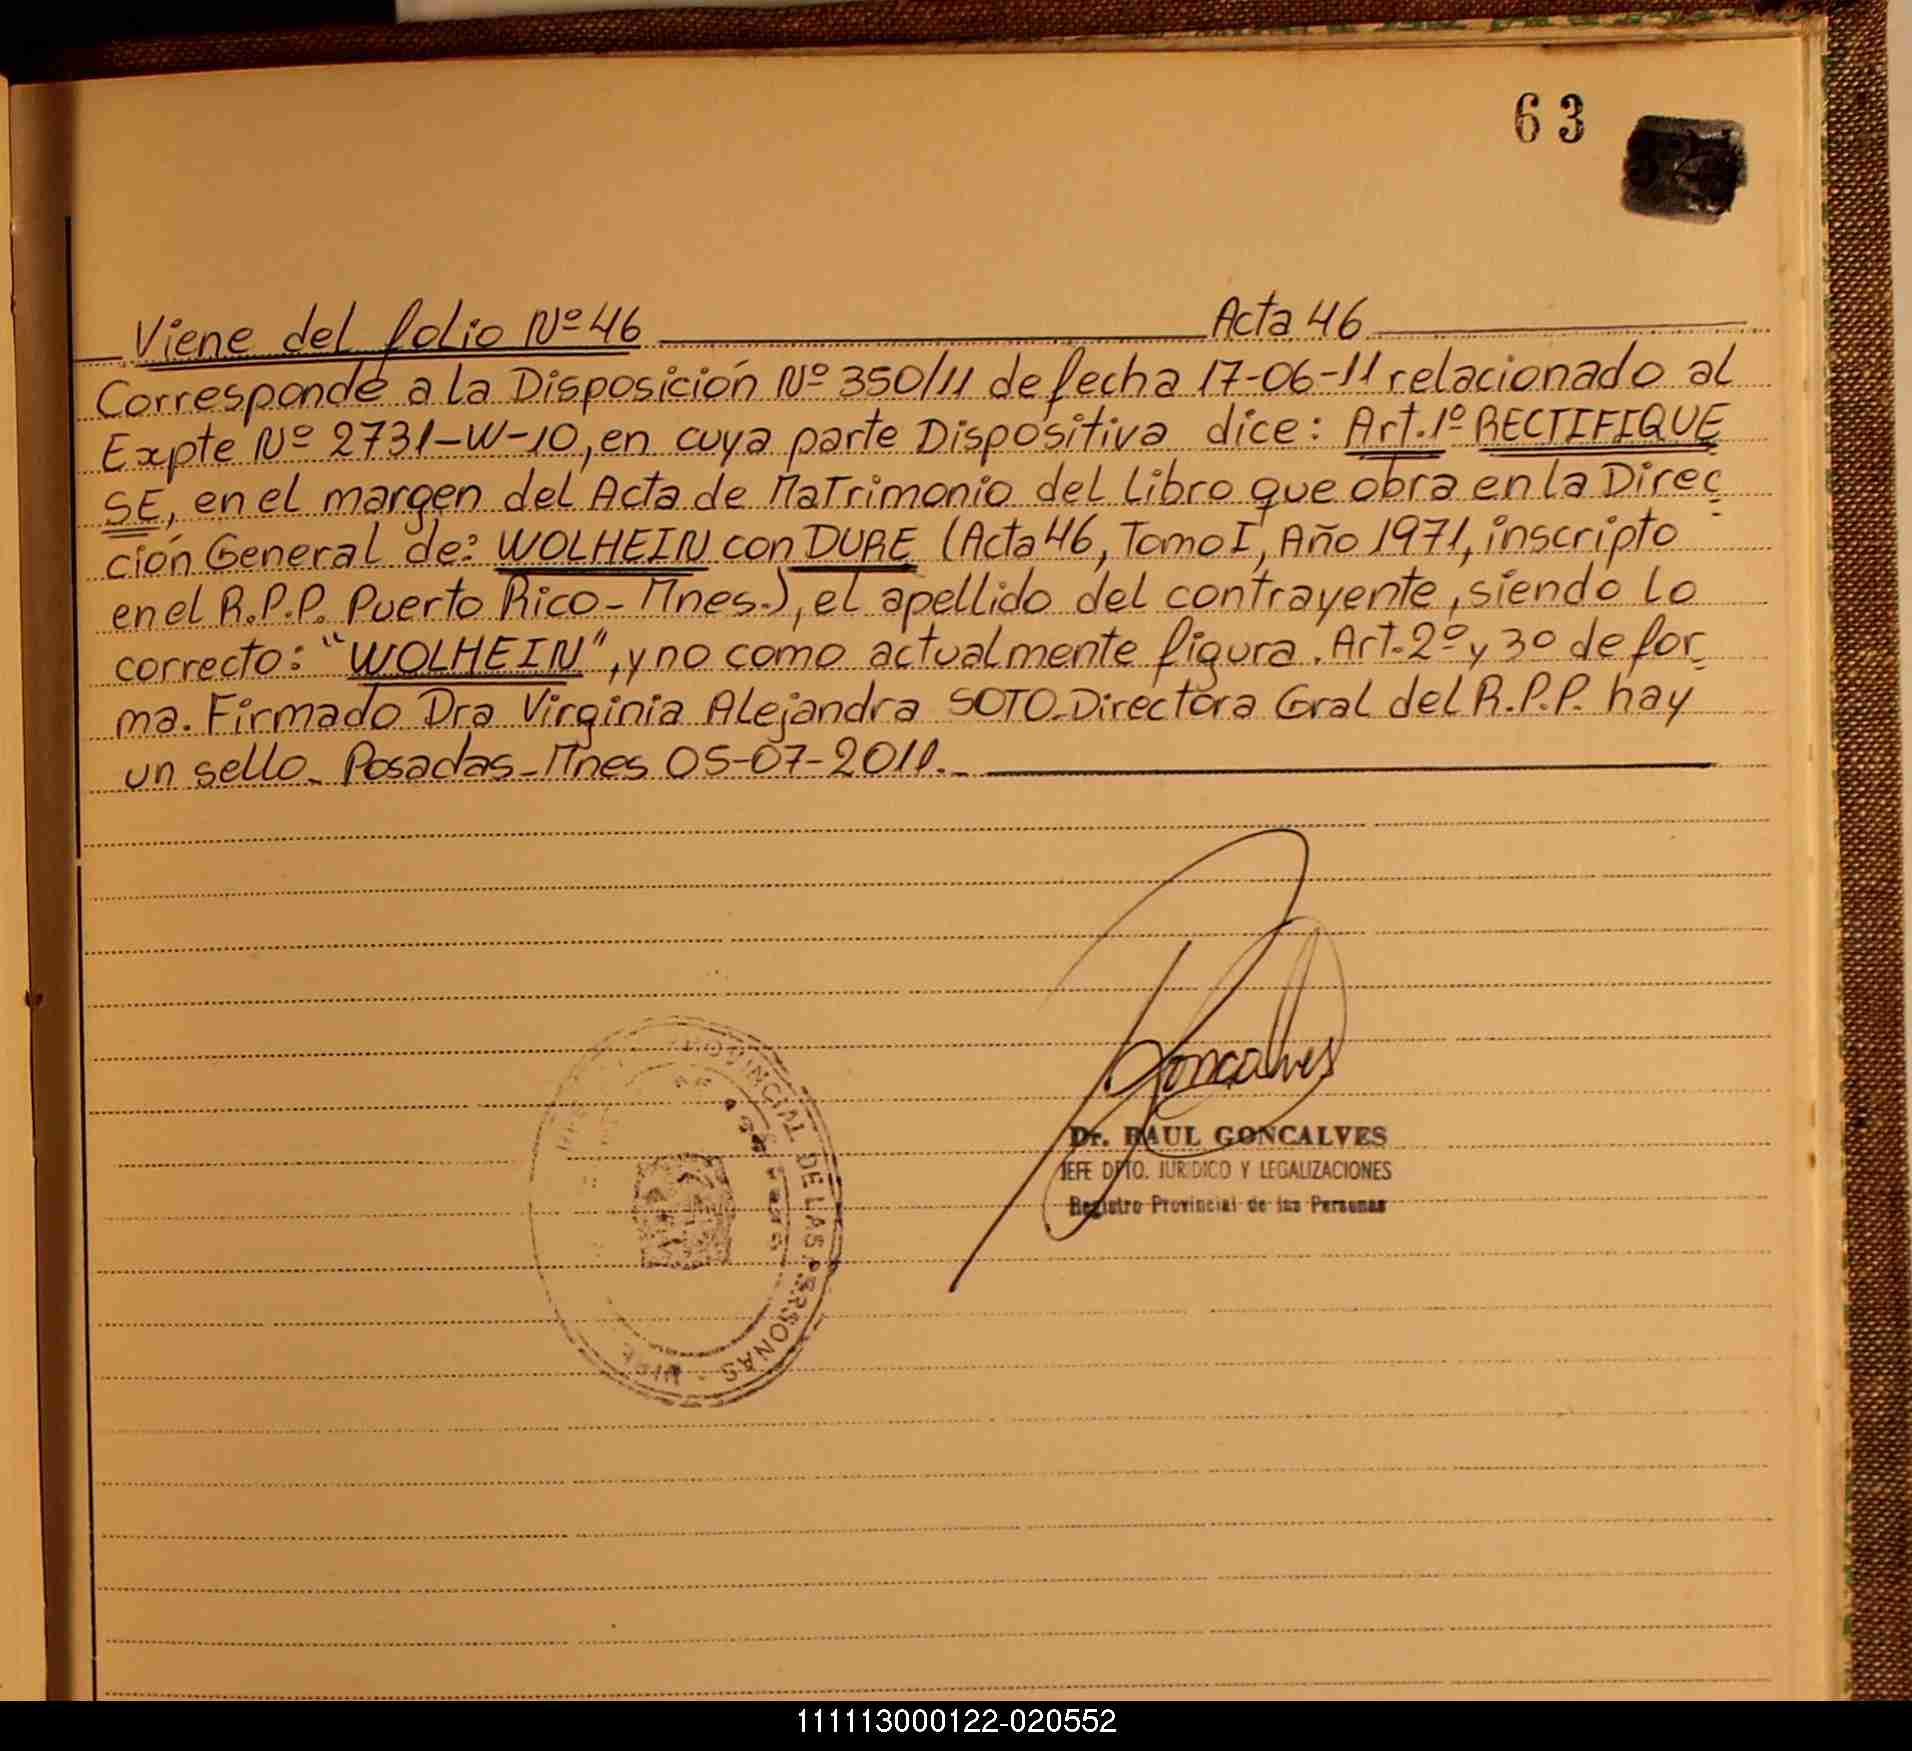 63
Viene del folio Nº 46 Acta 46
Corresponde a la Disposición Nº 350/11 de fecha 17-06-11 relacionado al
Expte Nº 2731-W-10, en cuya parte Dispositiva dice: Art. 1º RECTIFIQUE
SE, en el margen del Acta de Matrimonio del Libro que obra en la Direc
ción General de: WOLHEIN con DURE (Acta 46, Tomo I, Año 1971, inscripto
en el R.P.P. Puerto Rico - Mnes.), el apellido del contrayente, siendo lo
correcto: "WOLHEIN", y no como actualmente figura. Art. 2º y 3º de for
ma. Firmado Dra Virginia Alejandra SOTO - Directora Gral del R.P.P. hay
un sello - Posadas - Mnes 05-07-2011. -
Goncalves
Dr. RAUL GONCALVES
JEFE DPTO. JURIDICO Y LEGALIZACIONES
Registro Provincial de las Personas
PROVINCIAL DE LAS PERSONAS
111113000122-020552